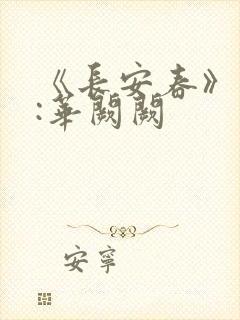 《長安春》
:華闕闕
安寧